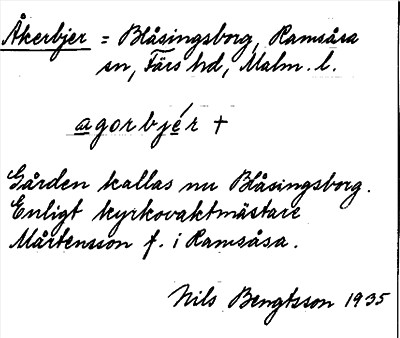 Åkerbjer = Blåsingsborg, Ramsåsa
sn, Färs hd, Malm. l.
agorbjér +
Gården kallas nu Blåsingsborg.
Enligt kyrkovaktmästare
Mårtensson f. i Ramsåsa.
Nils Bengtsson 1935